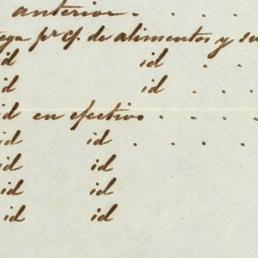 anterior. . . .
ga pr cf. de alimentos y su
id id . . .
id id . . .
id en efectivo . . . .
id id . . . .
id id
id id
id id